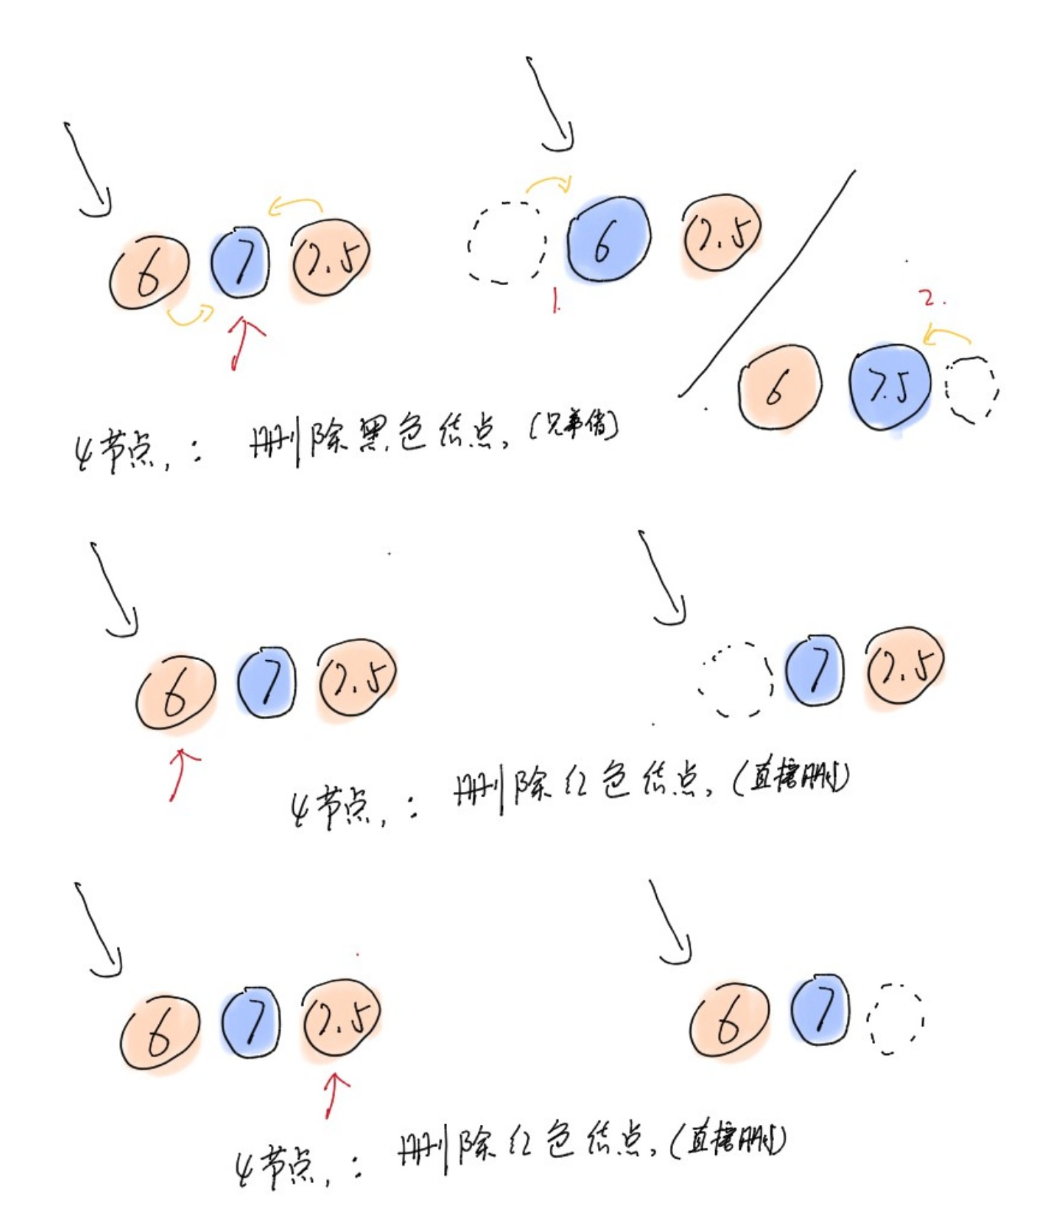 6 7 7.5
6 7.5
1.
2.
6 7.5
4节点: 删除黑色结点, (兄弟借)
6 7 7.5
7 7.5
4节点: 删除红色结点, (直接删)
6 7 7.5
6 7
4节点: 删除红色结点, (直接删)